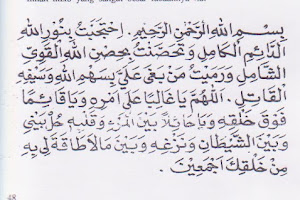 بِسْمِ اللهِ الرَّحْمٰنِ الرَّحِيْمِ. اِحْتَجَبْتُ بِنُوْرِ اللهِ
الدَّائِمِ الْكَامِلِ وَتَحَصَّنْتُ بِحِصْنِ اللهِ الْقَوِيِّ
الشَّامِلِ وَرَمَيْتُ مَنْ بَغٰى عَلَيَّ بِسَهْمِ اللهِ وَسَيْفِهِ
الْقَاتِلِ. اَللّٰهُمَّ يَا غَالِبًا عَلٰى اَمْرِهِ وَيَا قَائِمًا
فَوْقَ خَلْقِهِ وَيَا حَائِلًا بَيْنَ الْمَرْءِ وَقَلْبِهِ حُلْ بَيْنِيْ
وَبَيْنَ الشَّيْطَانِ وَنَزْغِهِ وَبَيْنَ مَالَا طَاقَةَ لِيْ بِهِ
مِنْ خَلْقِكَ اَجْمَعِيْنَ.
48